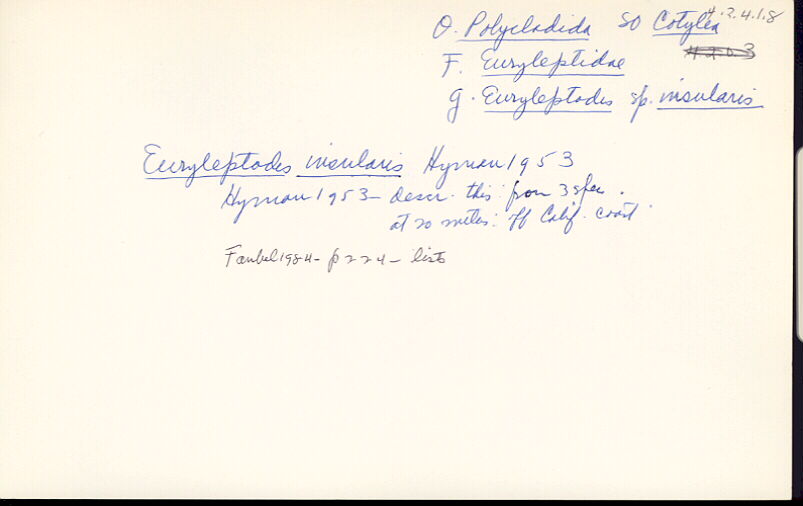 4.2.4.1.8
O. Polycladida SO Cotylea
F. Euryleptidae
g. Euryleptodes sp. insularis
Euryleptodes insularis Hyman 1953
Hyman 1953 - descr. this from 3 spec.
at 20 meters: off Calif. coast
Faubel 1984 - p 224 - lists